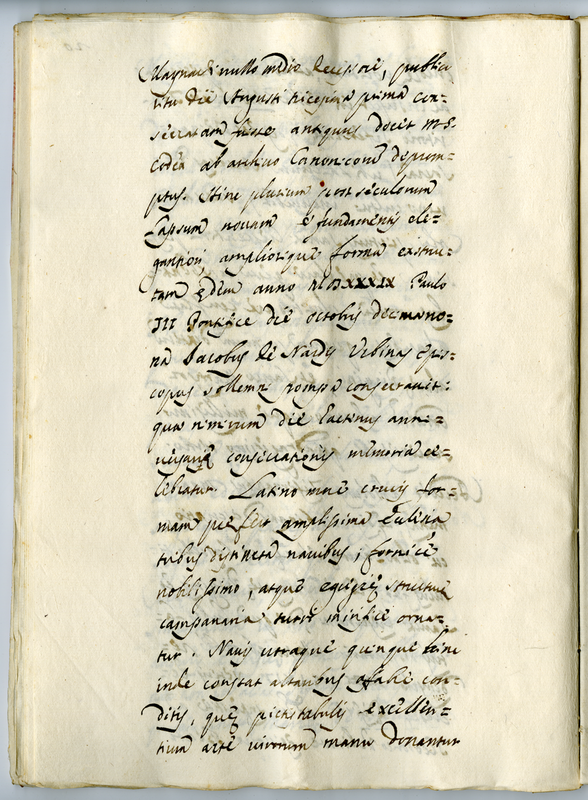 Maynardi nullo medio decessore, publico
ritu die Augusti vicesima prima con=
secratam fuisse antiquus docet MS.
codex ab archivo Canonicorum deprom=
ptus. Hinc plurium post seculorum
lapsum novam è fundamentis ele=
gantiori, ampliorique forma exstru=
ctam ędem anno MDXXXIX Paulo
III Pontifice die octobris decimano=
na Jacobus de Nardis Urbinas epis=
copus sollemni pompa consecravit:
quo nimirum die hactenus anni=
versarię consecrationis memoria ce=
lebratur. Latino more crucis for=
mam pre se fert amplissima Ecclesia
tribus distincta navibus, fornice
nobilissimo, atque egregię structurę
campanaria turri mirifice orna=
tur. Navis utraque quinque hinc
inde constat altaribus affabre con=
ditis, quę pictis tabulis excellen=
tium arte virorum manu donantur